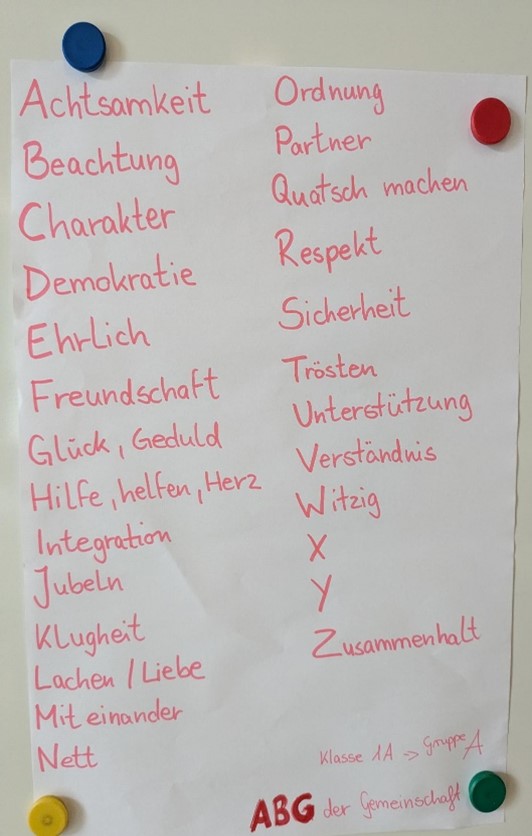 Achtsamkeit
Beachtung
Charakter
Demokratie
Ehrlich
Freundschaft
Glück, Geduld
Hilfe, helfen, Herz
Integration
Jubeln
Klugheit
Lachen / Liebe
Miteinander
Nett
Ordnung
Partner
Quatsch machen
Respekt
Sicherheit
Trösten
Unterstützung
Verständnis
Witzig
X
Y
Zusammenhalt
Klasse 1A -> Gruppe A
ABG der Gemeinschaft